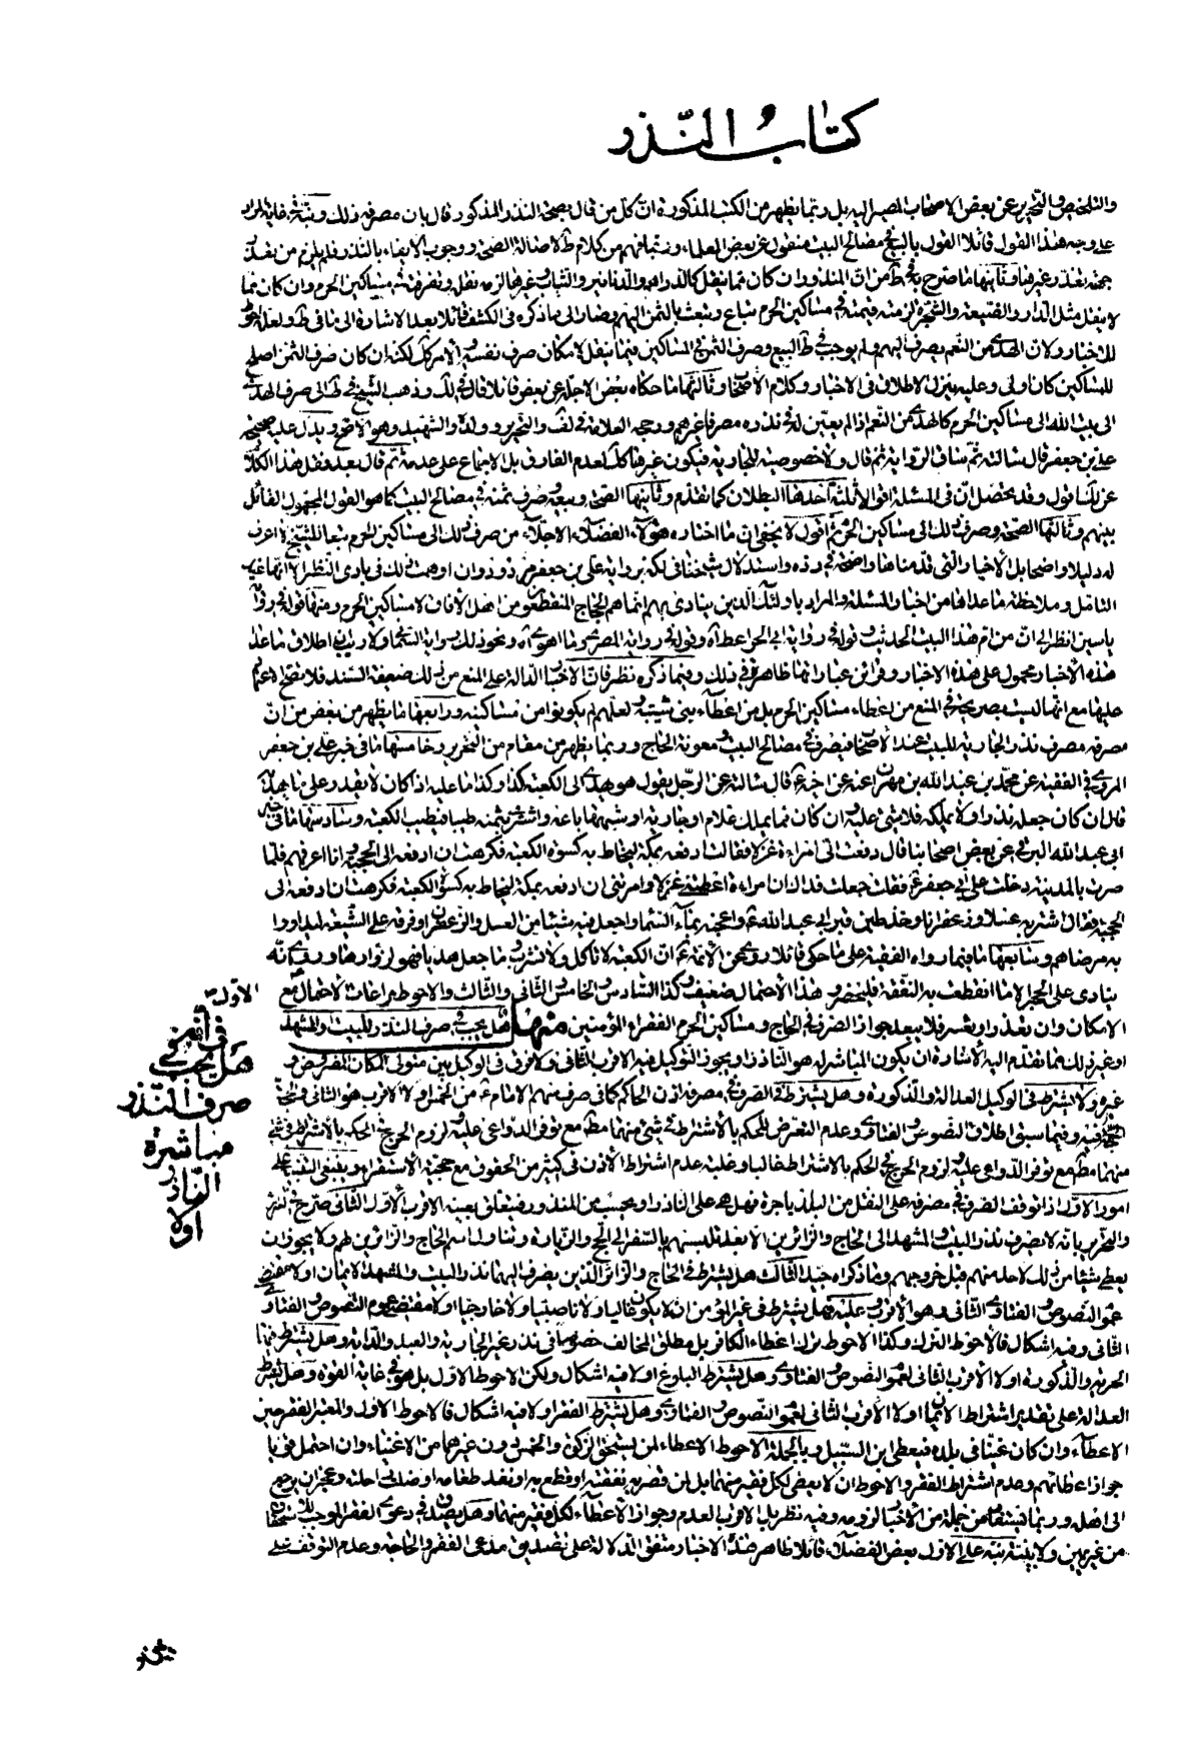 كتاب النذر
والتلخيص والتحرير عن بعض الاصحاب المصير اليه بل ربما يظهر من الكتب المذكورة ان كل من قال بصحة النذر المذكور قال بان مصرفه ذلك ونبّه في غاية المراد
على وجه هذا القول قائلا القول بالبيع في مصالح البيت منقول عن بعض العلماء وربما فهم من كلام ط لاصالة الصحة ووجوب الايفاء بالنذر فلم يلزم من تعذر
جهته تعذر غيرها وثانيها ما صرح به في ط من ان المنذور ان كان مما ينقل كالدراهم والدنانير والثياب وغيرها لزمه نقله وتفرقته في مساكين الحرم وان كان مما
لا ينقل مثل الدار والضيعة والشجرة لزمته قيمته في مساكين الحرم تباع ويبعث بالثمن اليهم وصار الى ما ذكره في الكشف قائلا بعد الاشارة الى ما في ط ولعله
للاخبار ولان الهدى من النعم يصرف اليهم ولم يوجب في ط البيع وصرف الثمن في المساكين فيما ينقل لامكان صرف نفسه والامر كل لكنه ان كان صرف الثمن اصلح
للمساكين كان اولى وعليه ينزل الاطلاق في الاخبار وكلام الأصحاب وثالثها ما حكاه بعض الاجلة عن بعض قائلا قال في لك وذهب الشيخ في ط الى صرف الهدى
الى بيت الله الى مساكين الحرم كالهدى من النعم اذا لم يعين له في نذره مصرفا غيرهم ورجحه العلامة في لف والتحرير وولده والشهيد وهو الاصح ويدل عليه صحيحة
علي بن جعفر قال سالته ثم ساق الرواية ثم قال ولا خصوصية للجارية فيكون غيرها كذلك لعدم الفارق بل الاجماع على عدمه ثم قال بعد نقل هذا الكلام
عن لك اقول وقد تحصل ان في المسئلة اقوالا ثلثة احدها البطلان كما تقدم وثانيها الصحة وبيعه وصرف ثمنه في مصالح البيت كما هو القول المجهول القائل
بينهم وثالثها الصحة وصرف ذلك الى مساكين الحرم اقول لا يخفى ان ما اختاره هؤلاء الفضلاء الاجلاء من صرف ذلك الى مساكين الحرم تبعا للشيخ لا اعرف
له دليلا واضحا بل الأخبار التي قدمناها واضحة في رده واستدلال شيخنا في لك برواية علي بن جعفر مردود وان اوهمت ذلك في بادى النظر الا انها عند
التامل وملاحظة ما عداها من اخبار المسئلة والمراد باولئك الذين ينادى بهم انما هم الحجاج المنقطعون من اهل الآفاق لا مساكين الحرم ومنها قوله في رواية
ياسين انظر الى من ام هذا البيت الحديث وقوله في رواية ابي الحر اعطاه وقوله في رواية المصري وما اهوى آه ونحو ذلك رواية السحما ولا ريب ان اطلاق ما عدا
هذه الأخبار محمول على هذه الاخبار وقرائن عباراتها ظاهرة في ذلك وفيما ذكره نظر فان الأخبار الدالة على المنع من ذلك ضعيفة السند فلا تصح الاعتماد
عليها مع انها ليست بصريحة في المنع من اعطاء مساكين الحرم بل من اعطاء بني شيبة ولعلهم لم يكونوا من مساكينه ورابعها ما يظهر من بعض من ان
مصرفه مصرف نذر الجارية للبيت عند الأصحاب فيصرف في مصالح البيت ومعونة الحاج وربما يظهر من مقام من التحرير وخامسها ما في خبر علي بن جعفر
المروى في الفقيه عن محمد بن عبد الله بن مهران عنه عن اخيه ع قال سالته عن الرجل يقول هو يهدى الى الكعبة كذا وكذا ما عليه اذا كان لا يقدر على ما يهديه
قال ان كان جعله نذرا ولا يملكه فلا شئ عليه وان كان مما يملك غلام او جارية او شبههما باعه واشترى بثمنه طيبا فيطيب الكعبة وسادسها ما في خبر
ابي عبد الله البرقي عن بعض اصحابنا قال دفعت الى امراة غزلا فقالت ادفعه بمكة ليخاط به كسوة الكعبة فكرهت ان ادفعه الى الحجبة وانا اعرفهم فلما
صرت بالمدينة دخلت على ابي جعفر ع فقلت جعلت فداك ان امراة اعطتني غزلا وامرتني ان ادفعه بمكة ليخاط به كسوة الكعبة فكرهت ان ادفعه الى
الحجبة فقال اشتر به عسلا وزعفرانا وخذ طين قبر ابي عبد الله ع واعجنه بماء السماء واجعل فيه شيئا من العسل والزعفران وفرقه على الشيعة ليداووا
به مرضاهم وسابعها ما فيما رواه الفقيه على ما حكى قائلا روى عن الأئمة ع ان الكعبة لا تاكل ولا تشرب وما جعل هديا فهو لزوارها وروى انه
ينادى على الحجر الا من انقطعت به النفقة فليحضر وهذا الأحتمال ضعيف وكذا السادس والخامس والثاني والثالث والاحوط مراعات الأحتمال مع
الامكان وان تعذر او تعسر فلا يبعد جواز الصرف في الحاج ومساكين الحرم الفقراء المؤمنين منها هل يجب في صرف النذر للبيت والمشهد
او غير ذلك مما تقدم اليه الأشارة ان يكون المباشر له هو الناذر او يجوز التوكيل فيه الاقرب الثاني ولا فرق في الوكيل بين متولى المكان المفروض و
غيره ولا يشترط في الوكيل العدالة والذكورة وهل يشترط في الصرف في مصرفه اذن الحاكم كما في صرف سهم الامام ع من الخمس او لا الاقرب هو الثاني والحجة
فيه وفيما سبق اطلاق النصوص والفتاوى وعدم التعرض للحكم بالأشتراط في شئ منهما مع توفر الدواعي عليه ولزوم الحرج في الحكم بالاشتراط في شئ
منهما مع توفر الدواعي عليه ولزوم الحرج في الحكم بالاشتراط غالبا وغلبة عدم اشتراط الأذن في كثير من الحقوق مع حجية الاستقراء وينبغي التنبيه على
امور الاول اذا توقف الصرف في مصرفه على النقل من البلد باجرة فهل هي على الناذر او يحتسب من المنذور فيتعلق بعينه الاقرب الأول الثاني صرح في
والتحرير بانه لا يصرف نذر البيت والمشهد الى الحاج والزائرين الا بعد تلبسهم بالسفر الى الحج والزيارة وتناول اسم الحاج والزائرين لهم ولا يجوز ان
يعطى شيئا من ذلك لاحد منهم قبل خروجهم وما ذكراه جيد الثالث هل يشترط في الحاج والزائر الذين يصرف اليهما نذر البيت والمشهد الايمان او لا مقتضى
عموم النصوص والفتاوى الثاني وهو الأقرب وعليه فهل يشترط في غير المؤمن ان لا يكون غاليا ولا ناصبيا ولا خارجيا او لا مقتضى عموم النصوص والفتاوى
الثاني وفيه اشكال فالأحوط الترك وكذا الاحوط ترك اعطاء الكافر بل مطلق المخالف خصوصا في نذر غير الجارية والعبد والدابة وهل يشترط فيهما
الحرية والذكورة او لا الاقرب الثاني لعموم النصوص والفتاوى وهل يشترط البلوغ او لا فيه اشكال ولكن الاحوط الاول بل هو في غاية القوة وهل يشترط
العدالة على تقدير اشتراط الايمان او لا الأقرب الثاني لعموم النصوص والفتاوى وهل يشترط الفقر او لا فيه اشكال فالاحوط الاول والمعتبر الفقر حين
الاعطاء وان كان غنيا في بلده فيعطى ابن السبيل وبالجملة الاحوط الاعطاء لمن يستحق الزكوة والخمس دون غيرهما من الاغنياء وان احتمل قويا
جواز اعطائهم وعدم اشتراط الفقر والاحوط ان لا يعطى لكل فقير منهما بل لمن قصر به نفقته او قطع به او نفد طعامه او ضلت راحلته وعجز ان يرجع
الى اهله وربما يستفاد من جملة من الأخبار لزومه وفيه نظر بل الاقرب العدم وجواز الأعطاء لكل فقير منهما وهل يصدق في دعوى الفقر الموجب للاستحقاق
من غير يمين ولا بينة نبّه على الاول بعض الفضلاء قائلا ظاهر هذه الاخبار متفق الدلالة على تصديق مدعى الفقر والحاجة وعدم التوقف على
الأول
في انه
هل يجب في
صرف النذر
مباشرة
الناذر
أولا